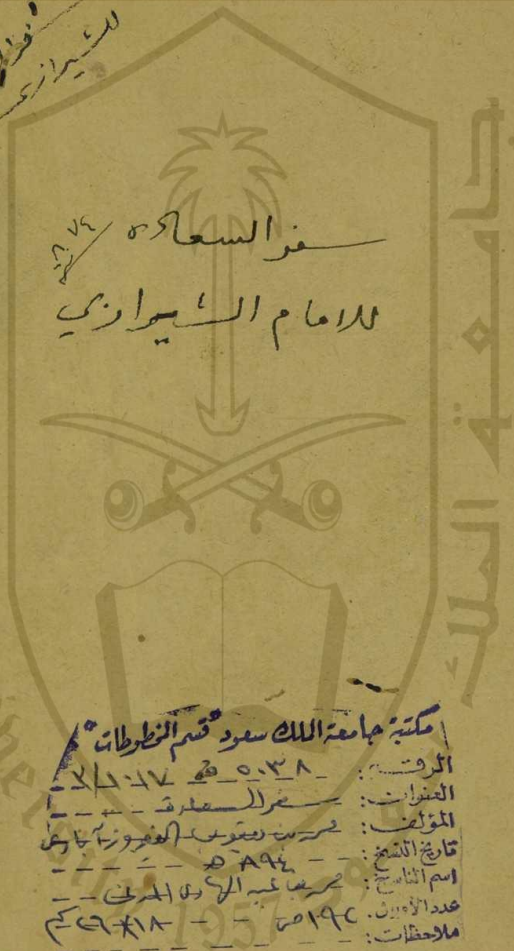 للشيرازي
سفر السعادة
للامام الشيرازي
جامعة الملك
مكتبة جامعة الملك سعود "قسم المخطوطات"
الرقم: ٥٠٣٨
العنوان: سفر السعادة
المؤلف: محمد بن يعقوب الفيروزآبادي
تاريخ النسخ: ٨٩٤ هـ
اسم الناسخ: عبد الهادي
عدد الأوراق: ١٩٢ ص
ملاحظات:
1957